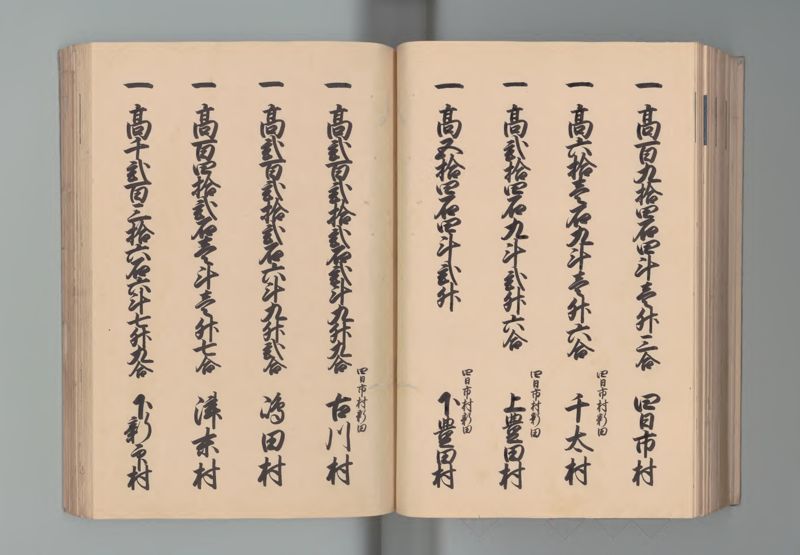 一 高百九拾四石四斗壱升三合 四日市村
一 高六拾壱石九斗壱升六合 四日市村新田 千太村
一 高弐拾四石九斗弐升六合 四日市村新田 上豊田村
一 高五拾四石四斗弐升 四日市村新田 下豊田村
一 高弐百弐拾弐石弐斗九升九合 四日市村新田 古川村
一 高弐百弐拾弐石六斗九升弐合 嶋田村
一 高百四拾弐石壱斗壱升七合 津末村
一 高千弐百三拾六石六斗七升九合 下新田村